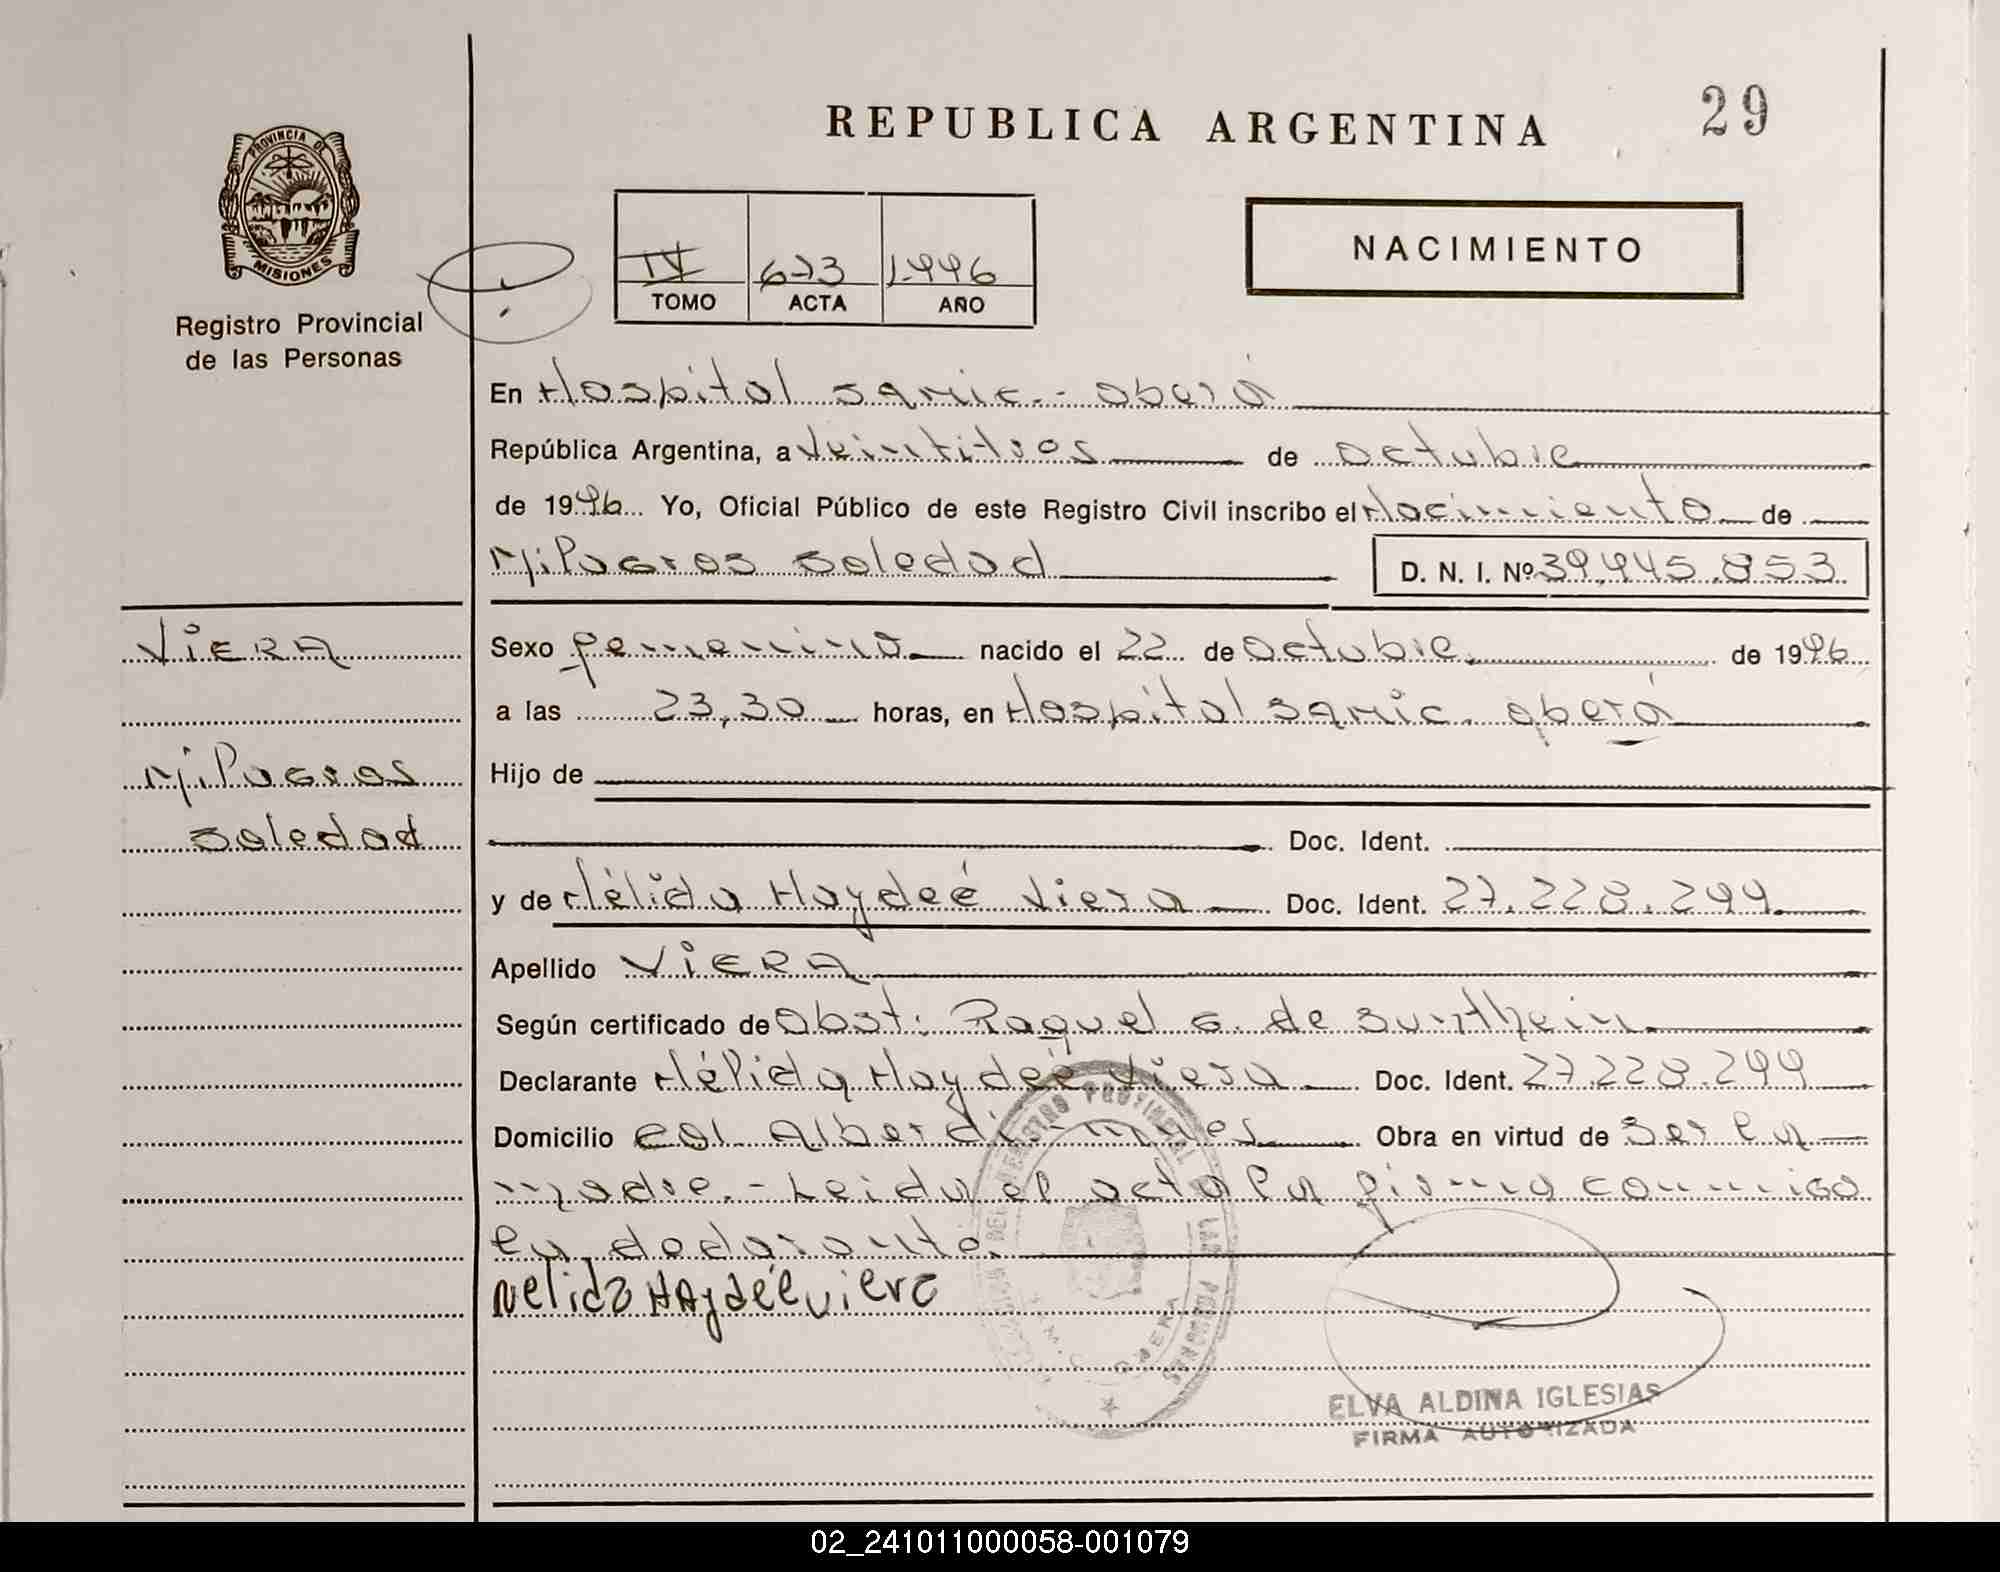 29
REPUBLICA ARGENTINA
PROVINCIA DE
MISIONES
Registro Provincial
de las Personas
NACIMIENTO
IV 673 1.996
TOMO ACTA AÑO
En Hospital Samic.- Oberá
República Argentina, a Veintitres de Octubre
de 1996 Yo, Oficial Público de este Registro Civil inscribo el Nacimiento de
Milagros Soledad D. N. I. Nº 39.945.853
VIERA
Milagros
Soledad
Sexo femenino nacido el 22 de Octubre de 1996
a las 23,30 horas, en Hospital Samic. Oberá
Hijo de
Doc. Ident.
y de Nélida Haydeé Viera Doc. Ident. 27.228.299
Apellido VIERA
Según certificado de Obst: Raquel G. de
Declarante Nélida Haydeé Viera Doc. Ident. 27.228.299
Domicilio Col. Alberdi.- Mnes Obra en virtud de Ser la
madre.- Leida el acta la firma conmigo
la declarante.
Nelida HAydéé viera
REGISTRO PROVINCIAL DE LAS PERSONAS
OBERA
ELVA ALDINA IGLESIAS
FIRMA AUTORIZADA
02_241011000058-001079